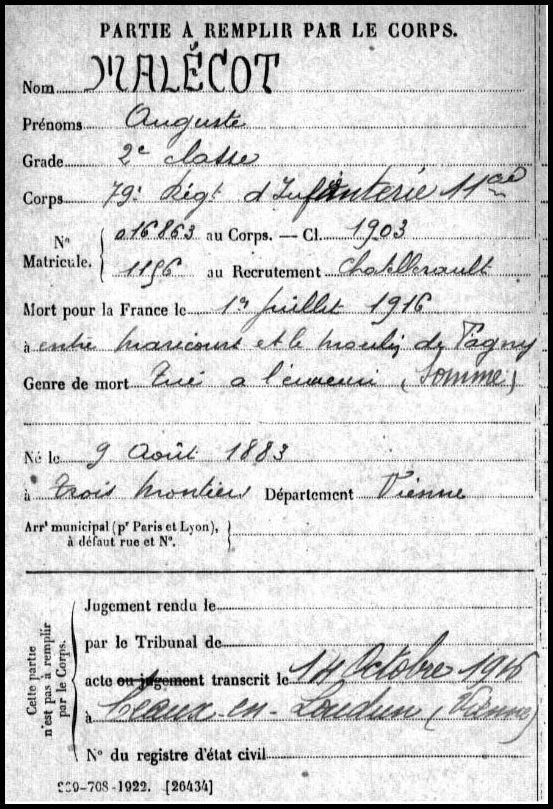 PARTIE À REMPLIR PAR LE CORPS.
Nom MALÉCOT
Prénoms Auguste
Grade 2e classe
Corps 79e Régt d'Infanterie 11e Cie
No Matricule. 016863 au Corps. — Cl. 1903
1196 au Recrutement Chatellerault
Mort pour la France le 1er juillet 1916
à entre Maricourt et le Moulin de Fagny
Genre de mort Tué à l'ennemi (Somme)
Né le 9 Août 1883
à Trois Moutiers Département Vienne
Arrt municipal (pr Paris et Lyon),
à défaut rue et No.
Cette partie n'est pas à remplir par le Corps.
Jugement rendu le
par le Tribunal de
acte ou jugement transcrit le 14 Octobre 1916
à Ceaux-en-Loudun (Vienne)
No du registre d'état civil
-708-1922. [26434]